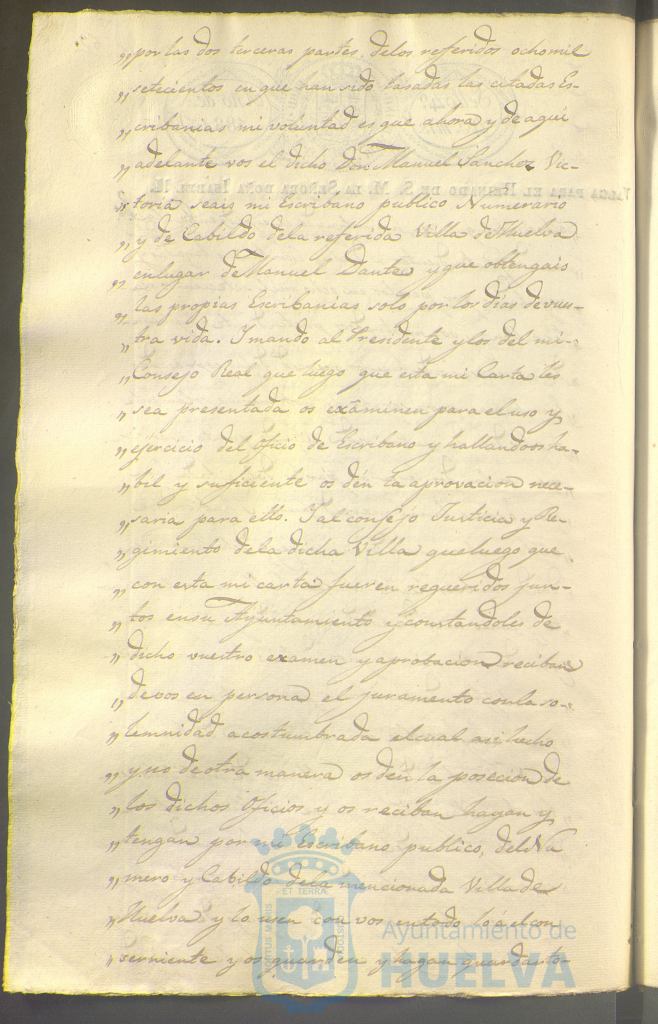 „por las dos terceras partes, de los referidos ocho mil
„setecientos en que han sido tasadas las citadas Es-
„cribanias mi voluntad es que ahora y de aqui
„adelante vos el dicho Don Manuel Sanchez Vic-
„toria seais mi Escribano publico Numerario
„y de Cabildo dela referida Villa de Huelva
„enlugar de Manuel Dante y que obtengais
„las propias Escribanias solo por los dias de vues-
„tra vida. Y mando al Presidente y los del mi-
„Consejo Real que luego que esta mi Carta les
„sea presentada os exâminen para el uso y
„ejercicio del Oficio de Escribano y hallandoos ha-
„bil y suficiente os dén la aprovacion nece-
„saria para ello. Y al consejo Justicia y Re-
„gimiento dela dicha Villa que luego que
„con esta mi carta fueren requeridos jun-
„tos en su Ayuntamiento y constandoles de
„dicho vuestro examen y aprobacion reciban
„de vos en persona el juramento con la so-
„lemnidad acostumbrada el cual asi hecho
„y no de otra manera os dén la posecion de
„los dichos Oficios y os reciban hayan y
„tengan por mi Escribano publico, del Nu
„mero y Cabildo dela mencionada Villa de
„Huelva y lo usen con vos en todo lo a el con
„serniente y os guarden y hagan guardar to-
VALGA PARA EL REINADO DE S. M. LA SEÑORA DOÑA ISABEL II.
ET TERRA
Ayuntamiento de
HUELVA